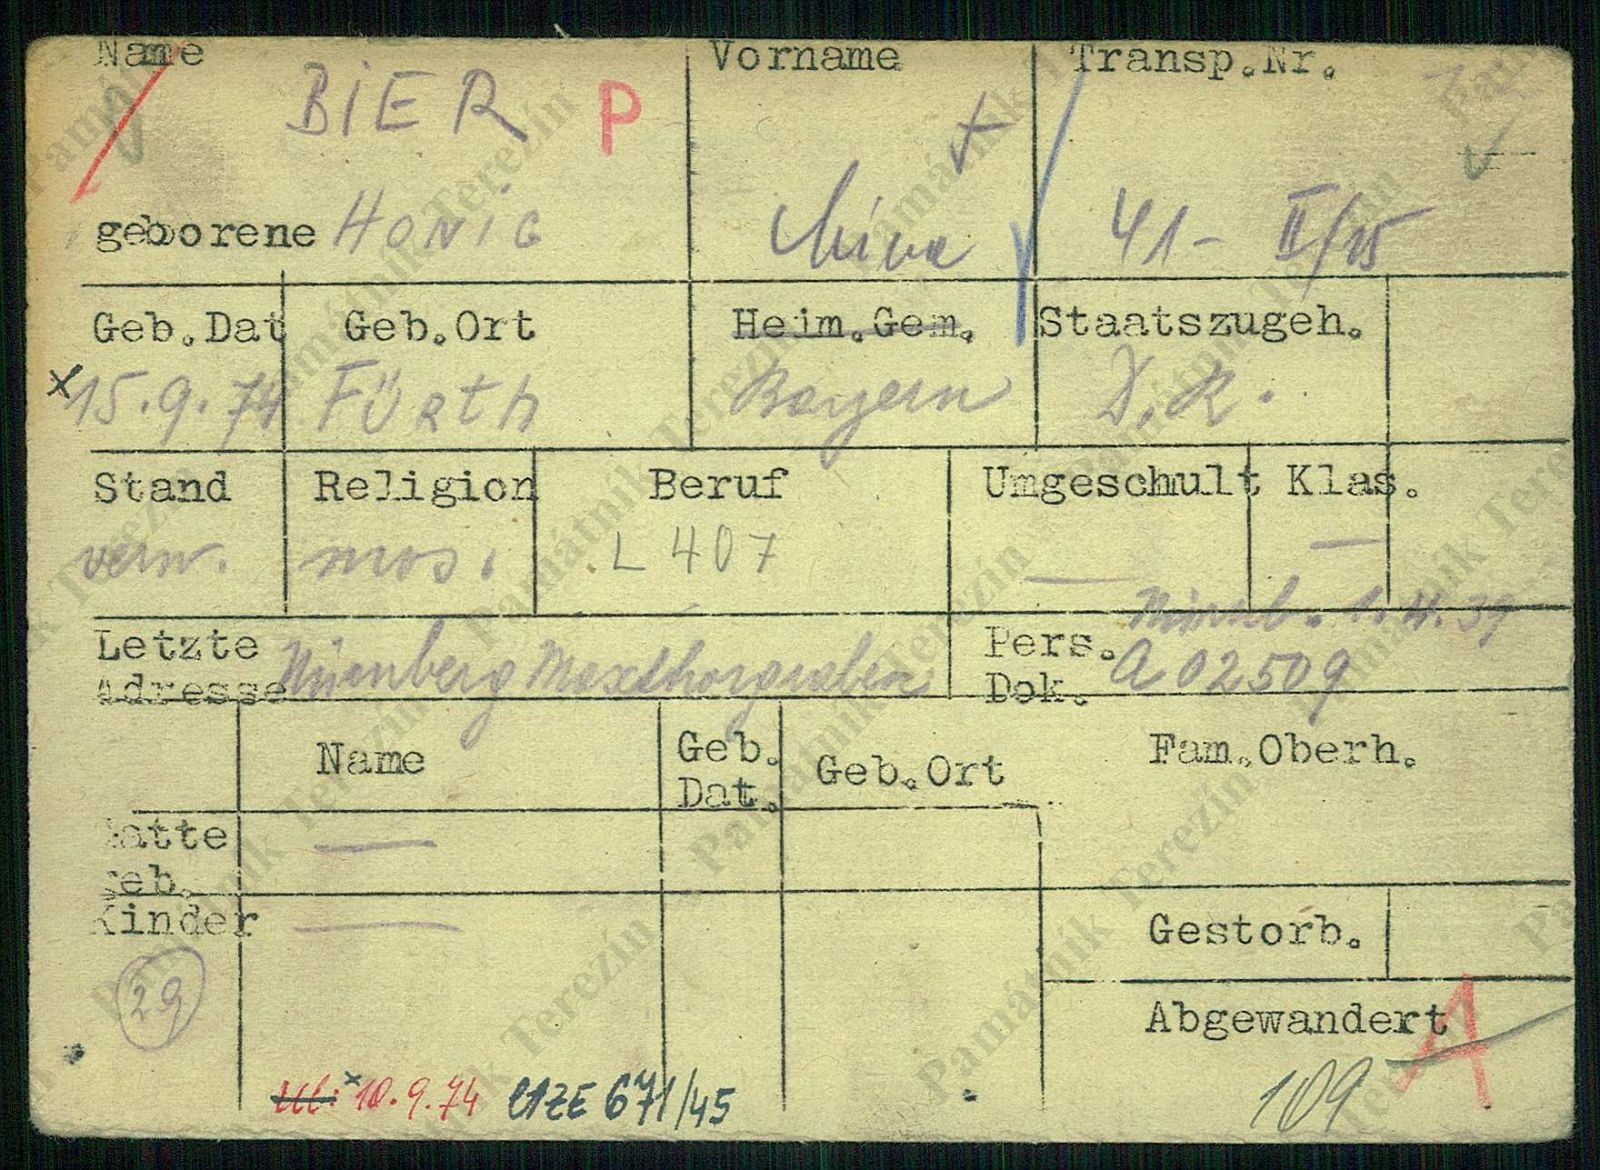 Name Vorname Transp.Nr.
BIER P
geborene HONIG 41- II/15
Geb.Dat Geb.Ort Heim.Gem. Staatszugeh.
x 15.9.74 Fürth Bayern D.R.
Stand Religion Beruf Umgeschult Klas.
verw. mos. L 407 — —
Letzte Adresse Nürnberg Maxthorgraben
Pers. Dok. A 02509
Name Geb. Dat. Geb.Ort Fam.Oberh.
Gatte —
geb.
Kinder —
Gestorb.
29
Abgewandert A
109
x 10.9.74 671/45
Památník Terezín